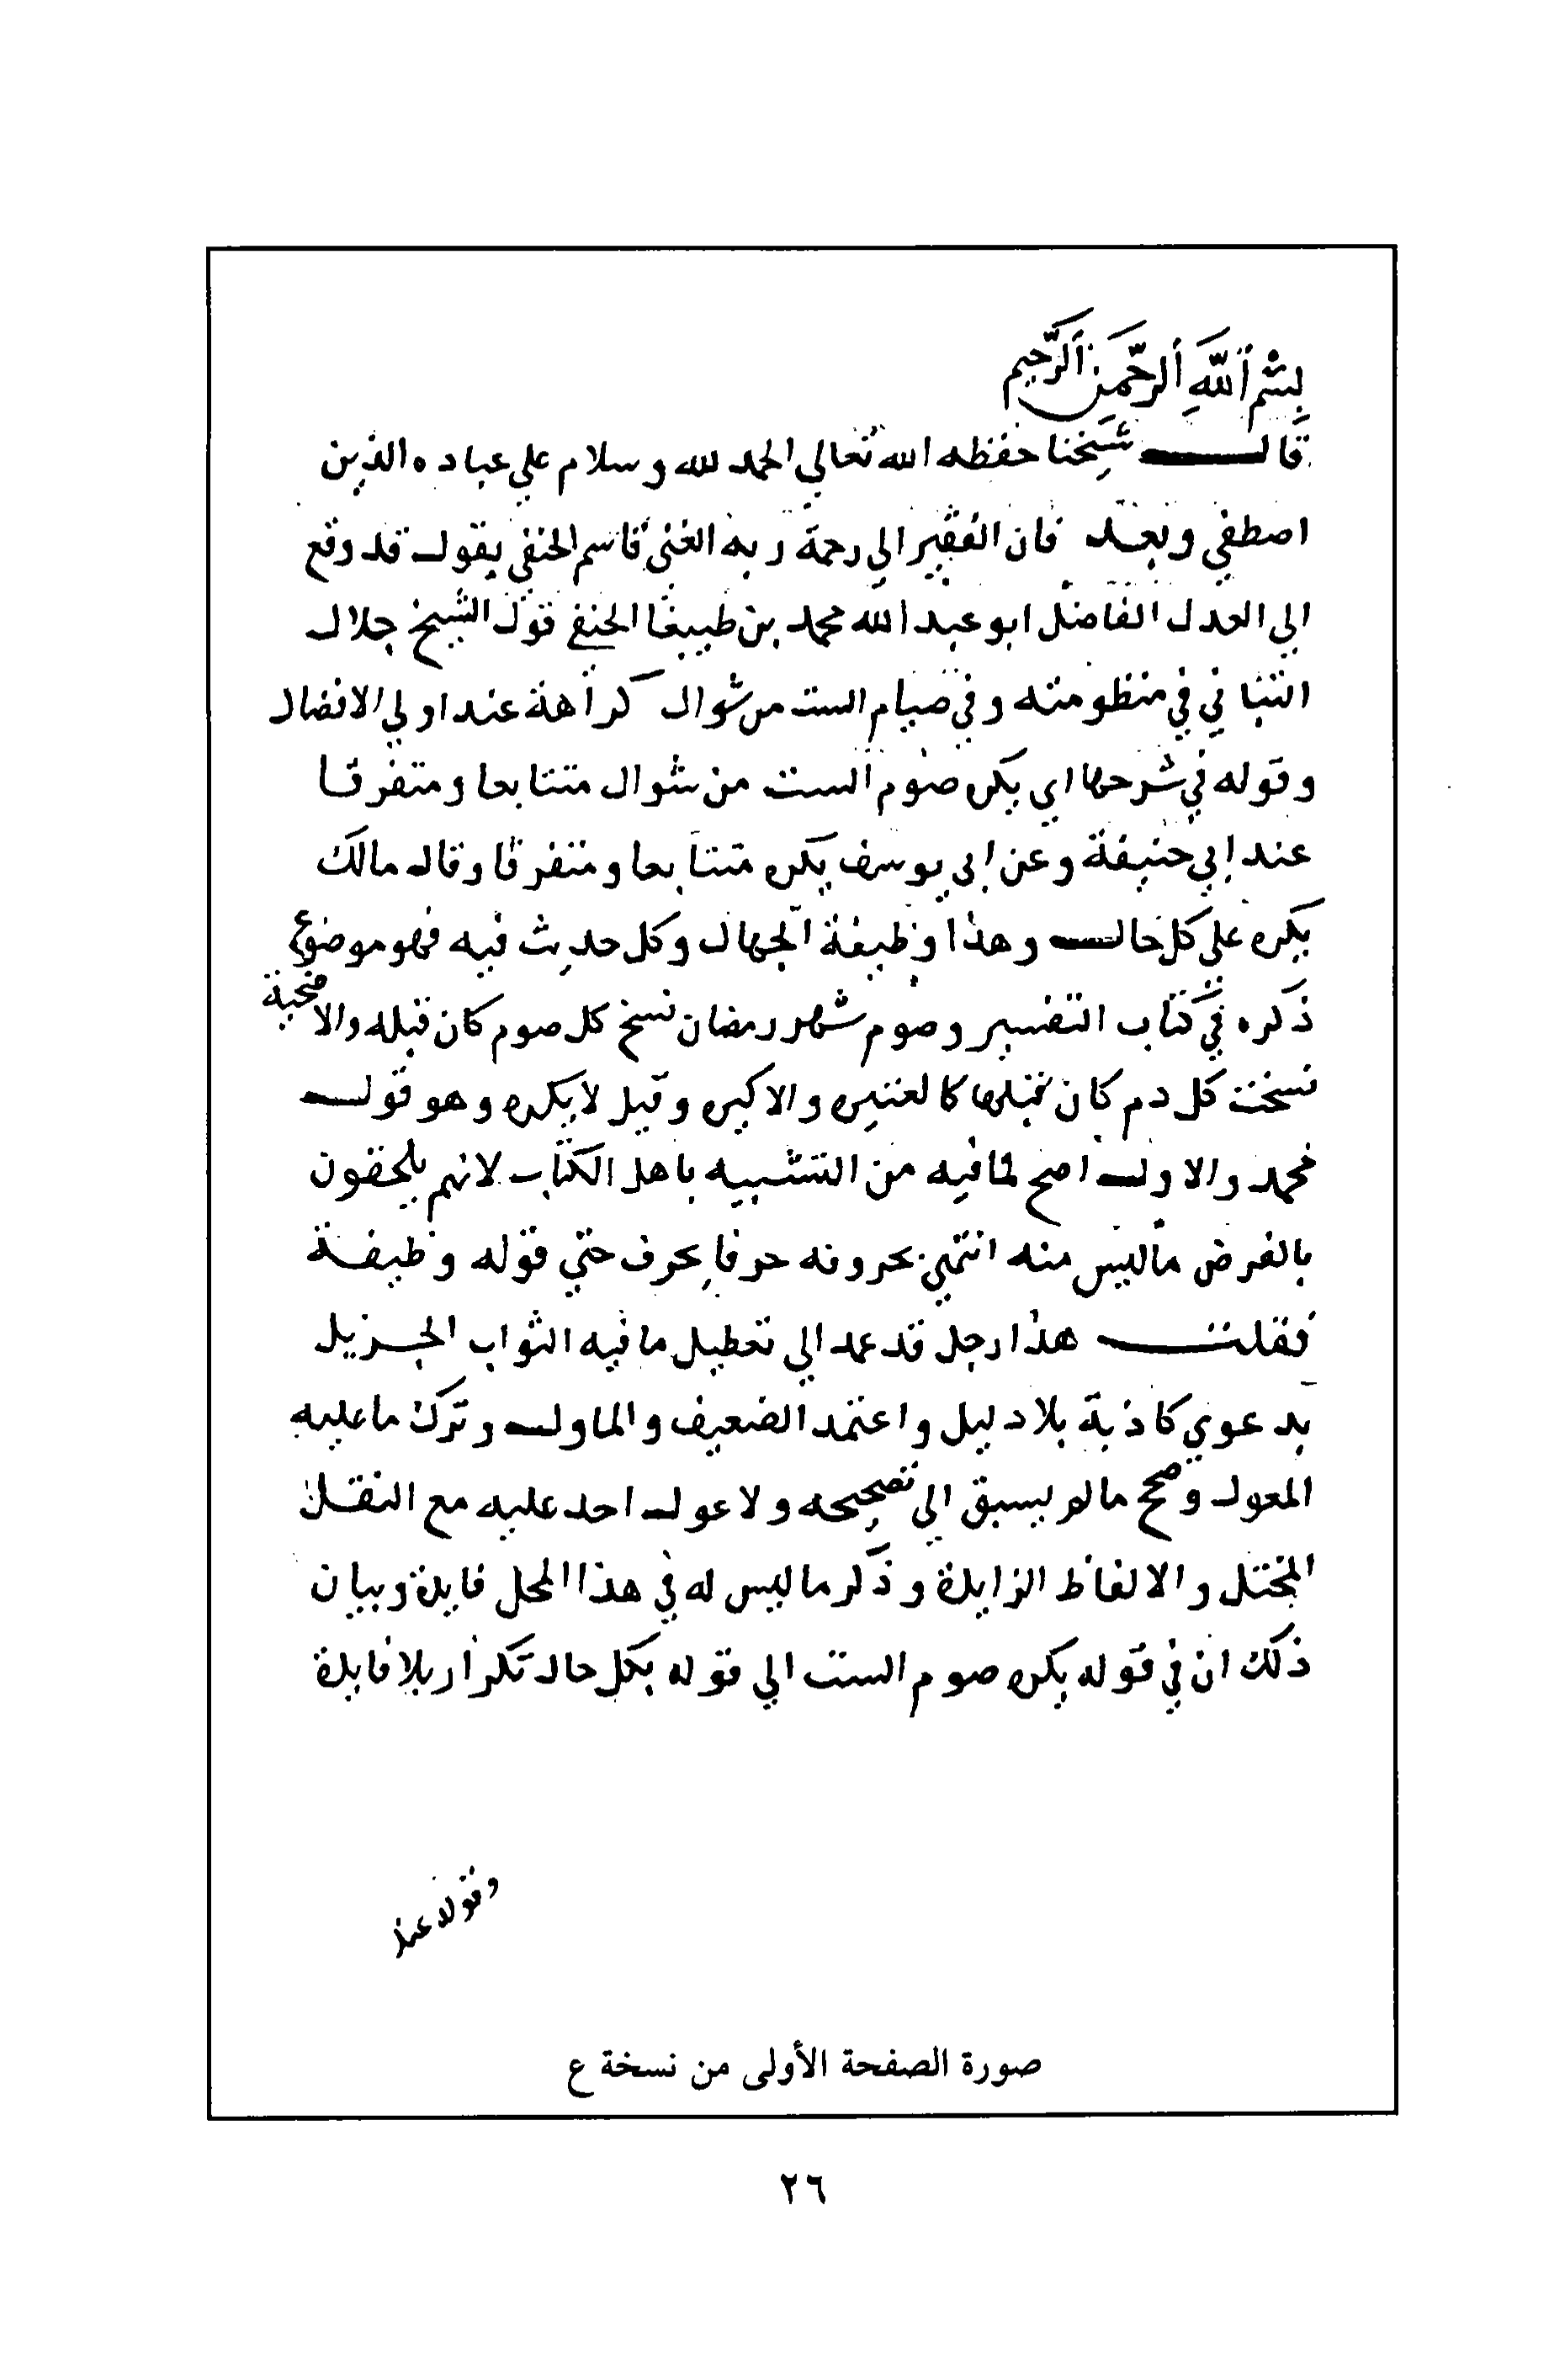 بِسْمِ ٱللَّهِ ٱلرَّحْمَنِ ٱلرَّحِيمِ
قال شيخنا حفظه الله تعالي الحمد لله وسلام علي عباده الذين
اصطفي وبعد فان الفقير الي رحمة ربه الغني قاسم الحنفي يقول قد وقع
الي العدل الفاضل ابو عبد الله محمد بن طيبغا الحنفي قول الشيخ جلال
التباني في منظومته وفي صيام الست من شوال كراهة عند اولي الافضال
وقوله في شرحها اي يكره صوم الست من شوال متتابعا ومتفرقا
عند ابي حنيفة وعن ابي يوسف يكره متتابعا ومتفرقا وقال مالك
يكره علي كل حال وهذا وظيفة الجهال وكل حديث فيه فهو موضوع
ذكره في كتاب التفسير وصوم شهر رمضان نسخ كل صوم كان قبله والاضحية
نسخت كل دم كان قبلها كالعتيره والاكيره وقيل لا يكره وهو قول
محمد والاول اصح لما فيه من التشبيه باهل الكتاب لانهم يلحقون
بالفرض ما ليس منه انتهي بحروفه حرفا بحرف حتي قوله وظيفة
فقلت هذا رجل قد عمد الي تعطيل ما فيه الثواب الجزيل
بدعوي كاذبة بلا دليل واعتمد الضعيف والماول وترك ما عليه
المعول وصحح ما لم يسبق الي تصحيحه ولا عول احد عليه مع النقل
المختل والالفاظ الزايدة وذكر ما ليس له في هذا المحل فايدة وبيان
ذلك ان في قوله يكره صوم الست الي قوله بكل حال تكرار بلا فايدة
وقوله عند
صورة الصفحة الأولى من نسخة ع
٢٦